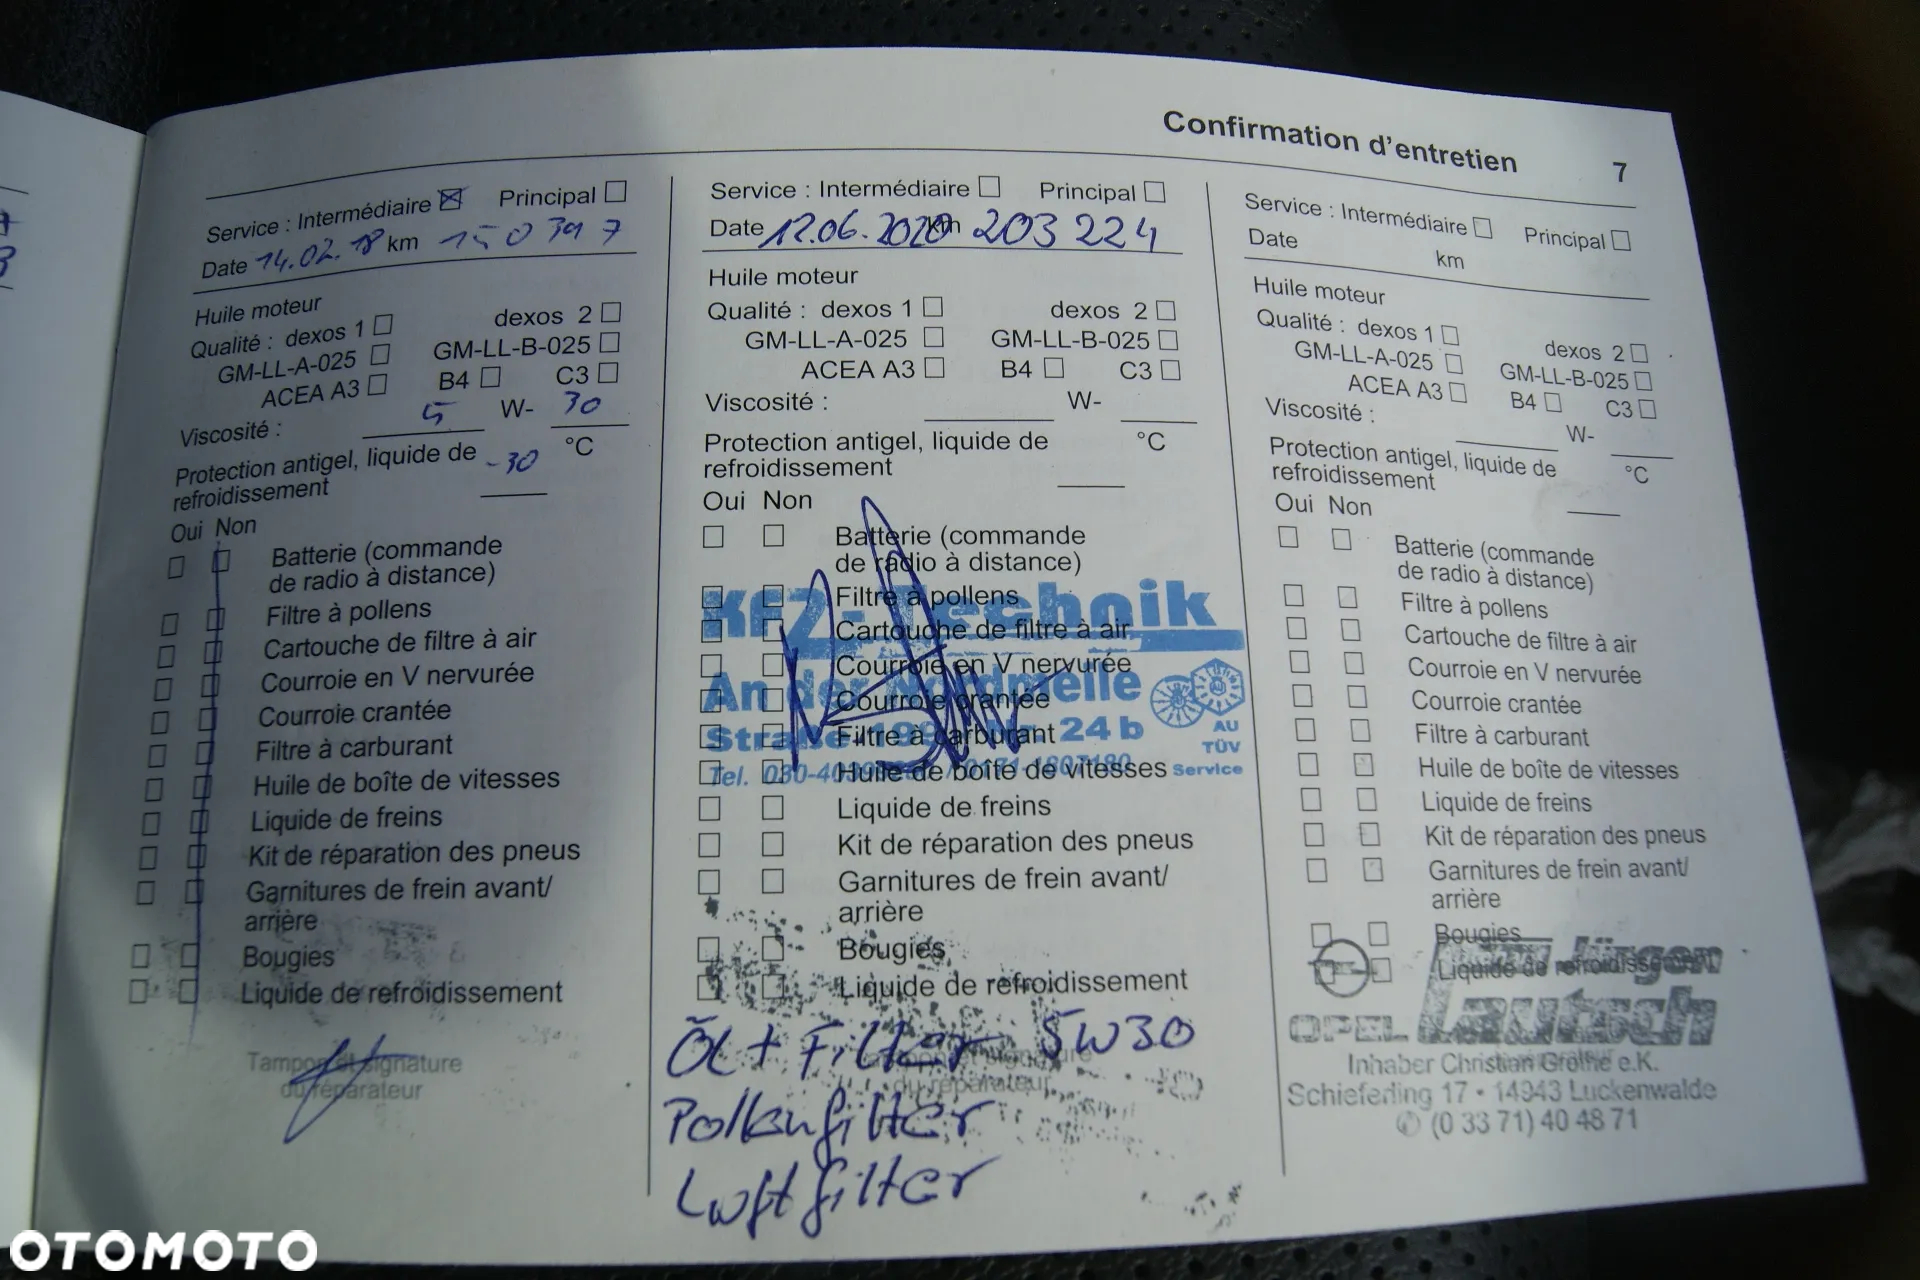 Confirmation d'entretien 7
Service : Intermédiaire Principal
Date 14.02.18 km 150 397
Huile moteur
Qualité : dexos 1 dexos 2
GM-LL-A-025 GM-LL-B-025
ACEA A3 B4 C3
Viscosité : 5 W- 30
Protection antigel, liquide de -30 °C
refroidissement
Oui Non
Batterie (commande
de radio à distance)
Filtre à pollens
Cartouche de filtre à air
Courroie en V nervurée
Courroie crantée
Filtre à carburant
Huile de boîte de vitesses
Liquide de freins
Kit de réparation des pneus
Garnitures de frein avant/
arrière
Bougies
Liquide de refroidissement
Tampon et signature
du réparateur
Service : Intermédiaire Principal
Date 12.06.2020 km 203 224
Huile moteur
Qualité : dexos 1 dexos 2
GM-LL-A-025 GM-LL-B-025
ACEA A3 B4 C3
Viscosité : W-
Protection antigel, liquide de °C
refroidissement
Oui Non
Batterie (commande
de radio à distance)
Filtre à pollens
Cartouche de filtre à air
Courroie en V nervurée
Courroie crantée
Filtre à carburant
Huile de boîte de vitesses
Liquide de freins
Kit de réparation des pneus
Garnitures de frein avant/
arrière
Bougies
Liquide de refroidissement
KfZ-Technik
An der
Straße 24 b
AU
TÜV
Service
Tel.
Öl + Filter 5W30
Tampon et signature
du réparateur
Pollenfilter
Luftfilter
Service : Intermédiaire Principal
Date km
Huile moteur
Qualité : dexos 1 dexos 2
GM-LL-A-025 GM-LL-B-025
ACEA A3 B4 C3
Viscosité : W-
Protection antigel, liquide de °C
refroidissement
Oui Non
Batterie (commande
de radio à distance)
Filtre à pollens
Cartouche de filtre à air
Courroie en V nervurée
Courroie crantée
Filtre à carburant
Huile de boîte de vitesses
Liquide de freins
Kit de réparation des pneus
Garnitures de frein avant/
arrière
Bougies
Liquide de refroidissement
Jürgen
OPEL Lautsch
Inhaber Christian Grothe e.K.
Schieferling 17 • 14943 Luckenwalde
(0 33 71) 40 48 71
OTOMOTO